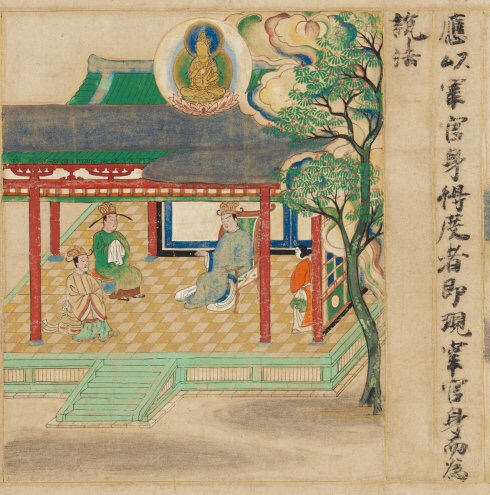 應以宰官身得度者即現宰官身而為
說法